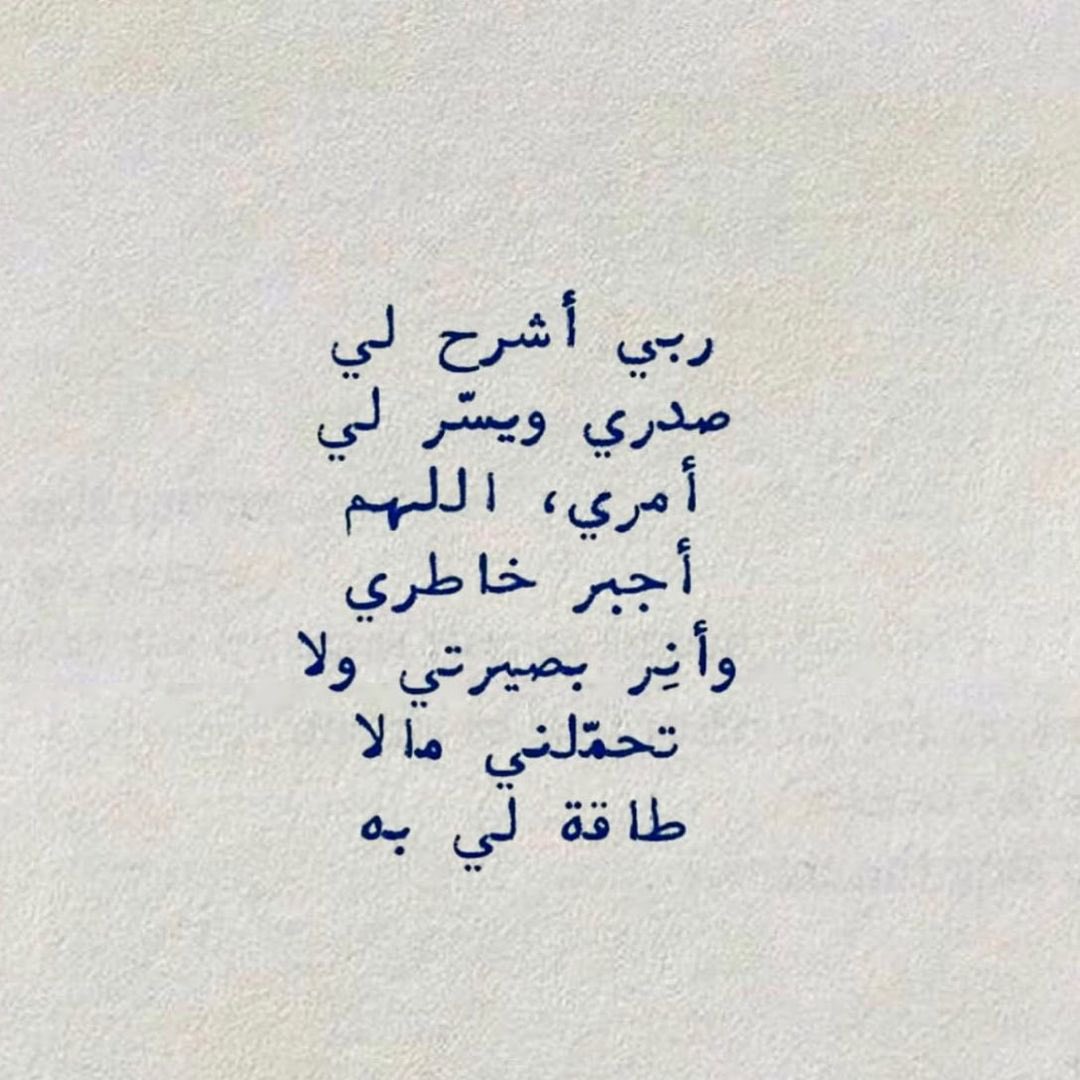 ربي أشرح لي
صدري ويسّر لي
أمري، اللهم
أجبر خاطري
وأنِر بصيرتي ولا
تحمّلني مالا
طاقة لي به